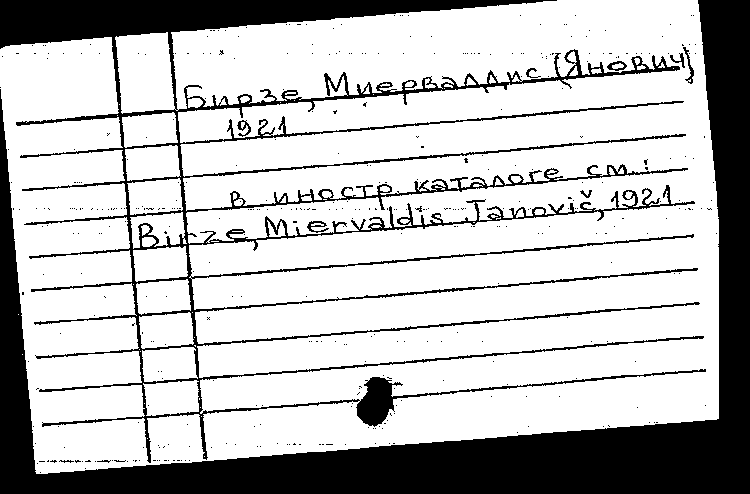 Бирзе, Миервалдис (Янович)
1921
в иностр. каталоге см.:
Birze, Miervaldis Janovič, 1921